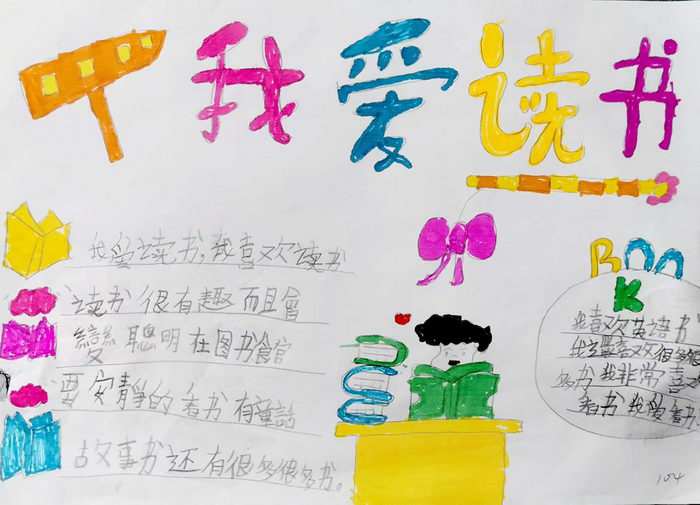 我爱读书
我爱读书,我喜欢读书
读书很有趣而且會
變聪明在图书馆
要安靜的看书有童話
故事书还有很多很多书。
BOO
K
我喜欢英语书
我喜欢很多很
多书我非常喜
看书我爱看书
104